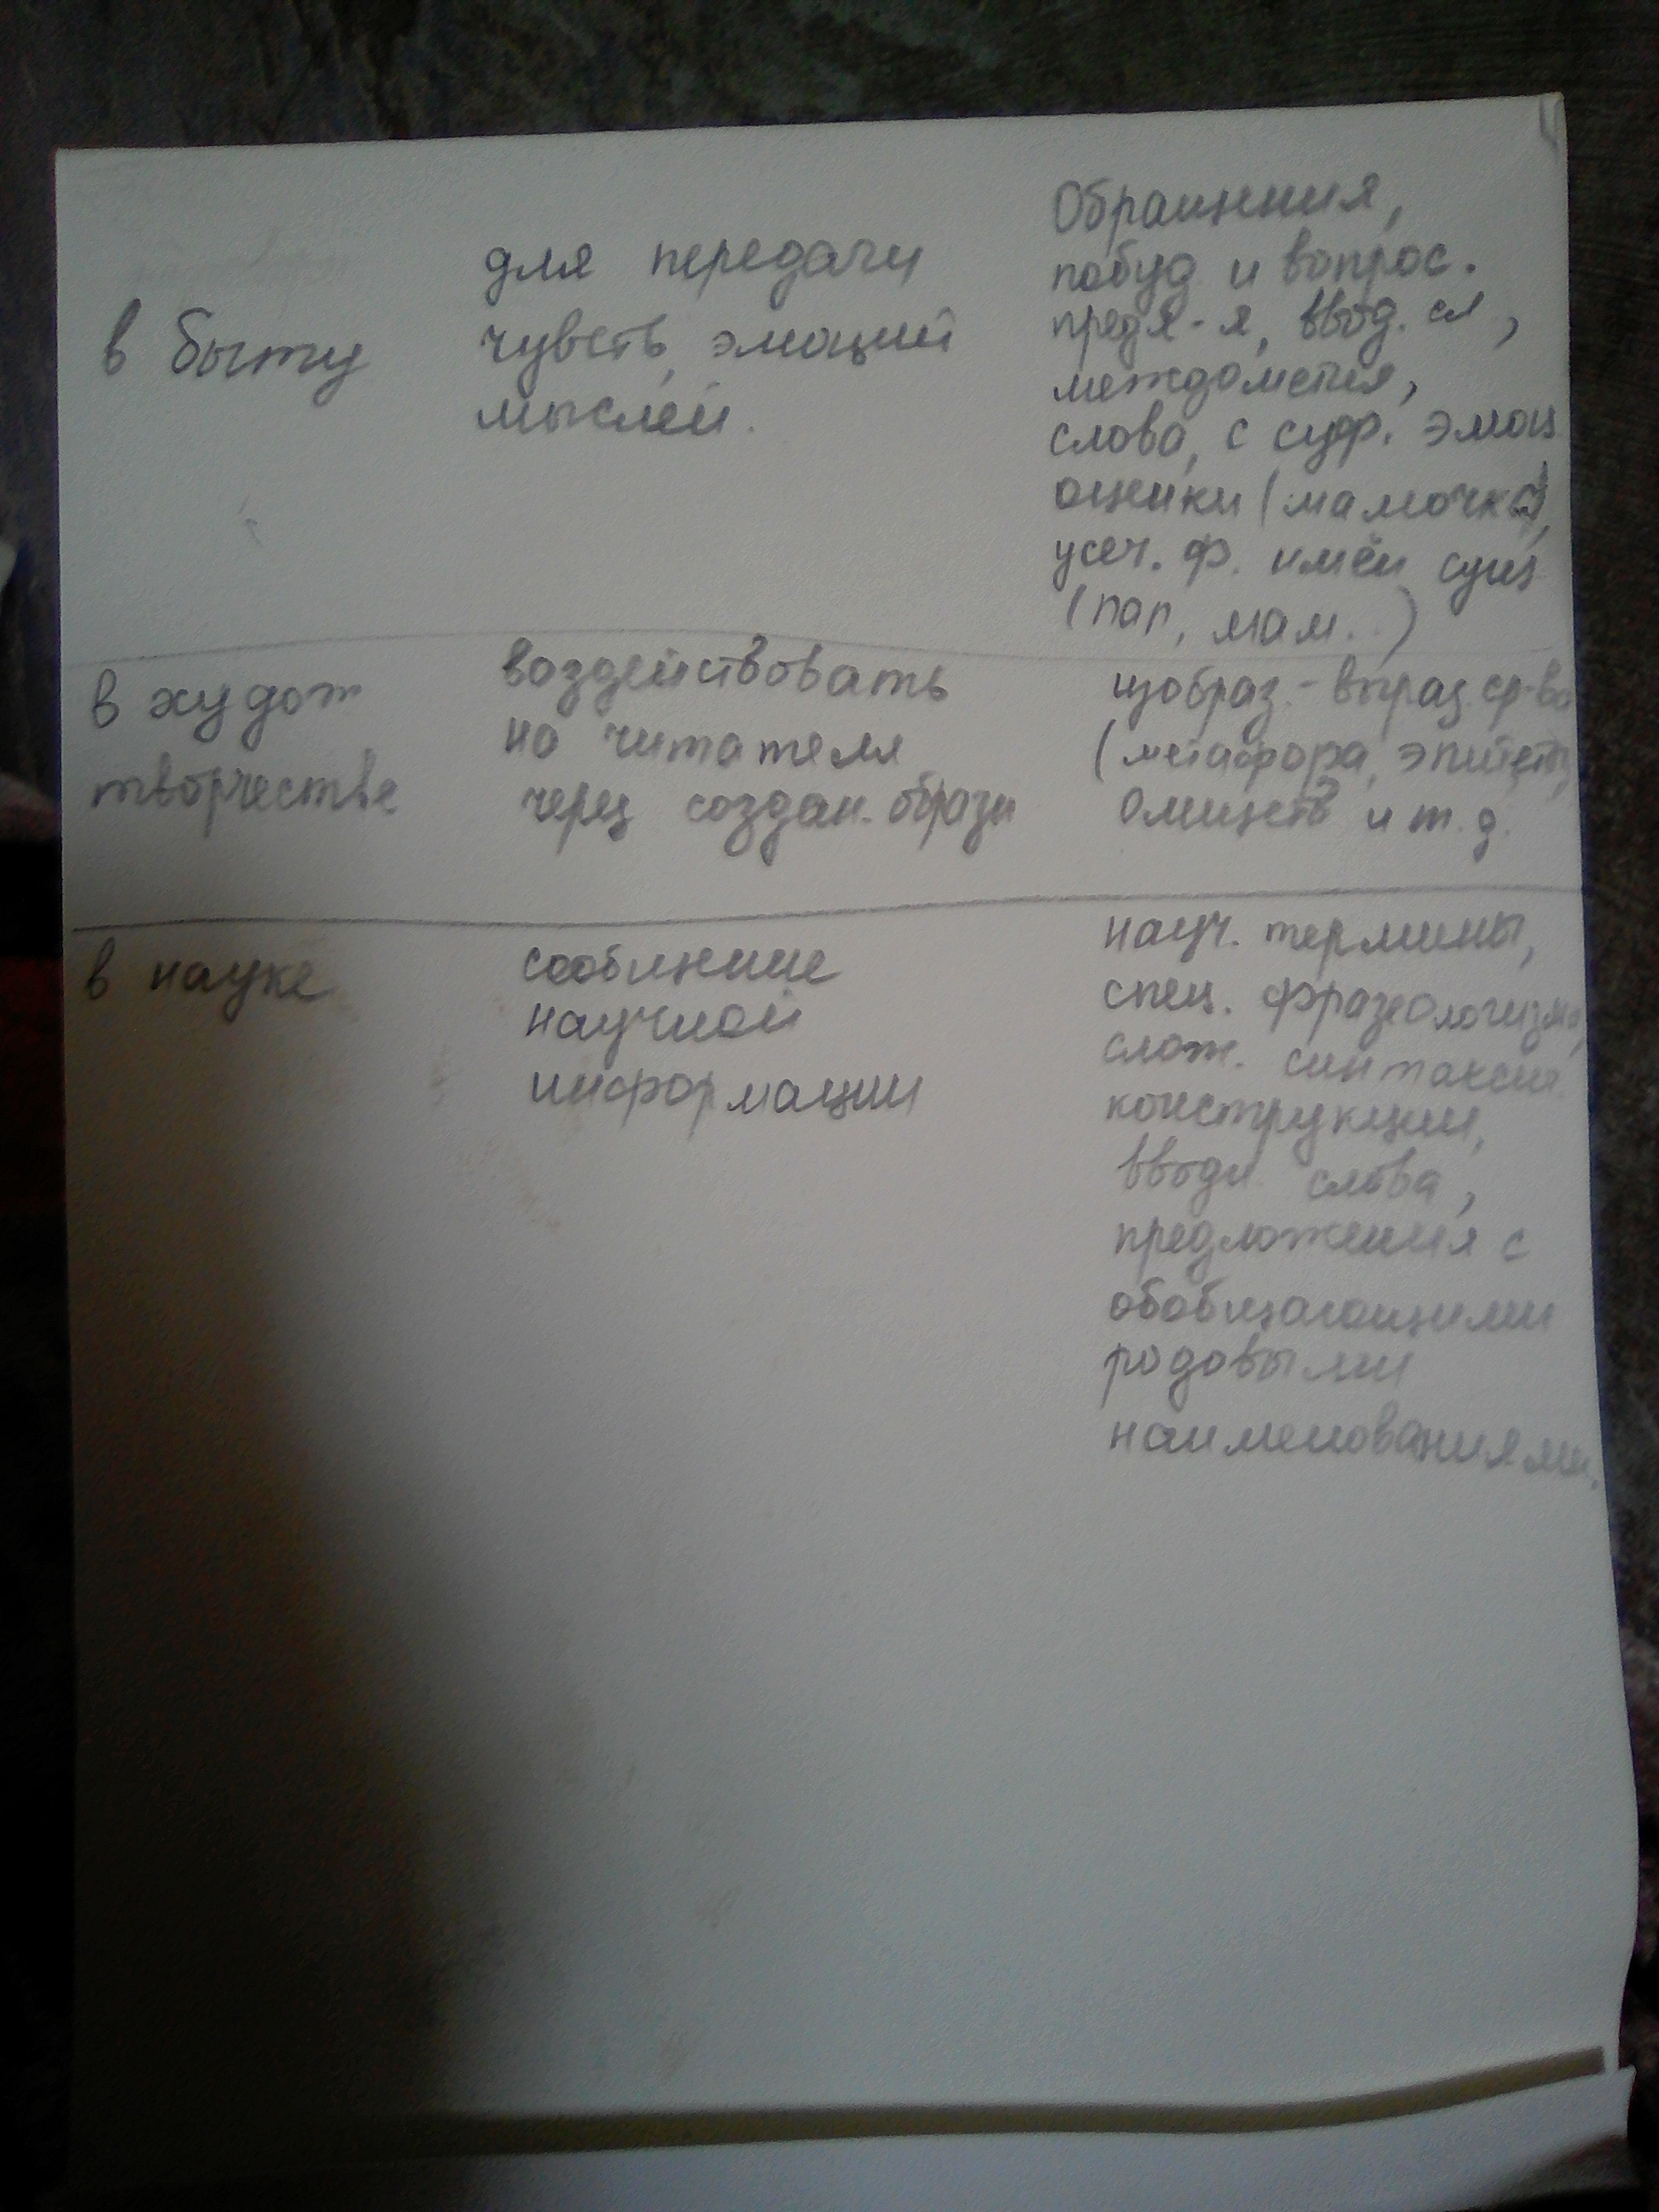 в быту
для передачи
чувств, эмоций
мыслей.
Обращения,
побуд и вопрос.
предл-я, ввод. сл,
междометия,
слова, с суф. эмоц
оценки (мамочка),
усеч. ф. имён сущ
(пап, мам..)
в худож
творчестве
воздействовать
на читателя
через создан. образы
изобраз.-выраз ср-ва
(метафора, эпитет,
олицетв и т.д.
в науке
сообщение
научной
информации
науч. термины,
спец. фразеологизмы,
слож. синтаксич.
конструкции,
вводн. слова,
предложения с
обобщающими
родовыми
наименованиями.